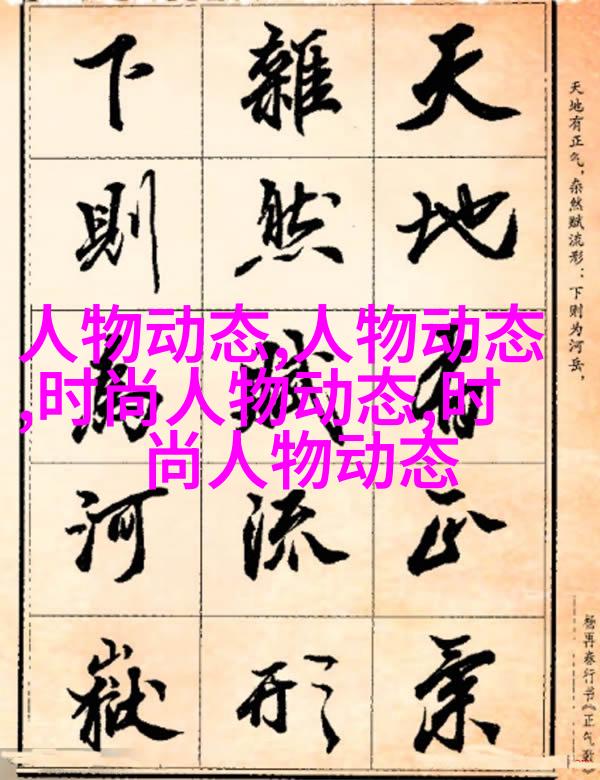 天地有正氣
雜然賦流形
下則為河嶽
天地有正气,杂然赋流形:下则为河岳,
杨再春行书《正气歌》
人物动态,人物动态
,时尚人物动态,时
尚人物动态